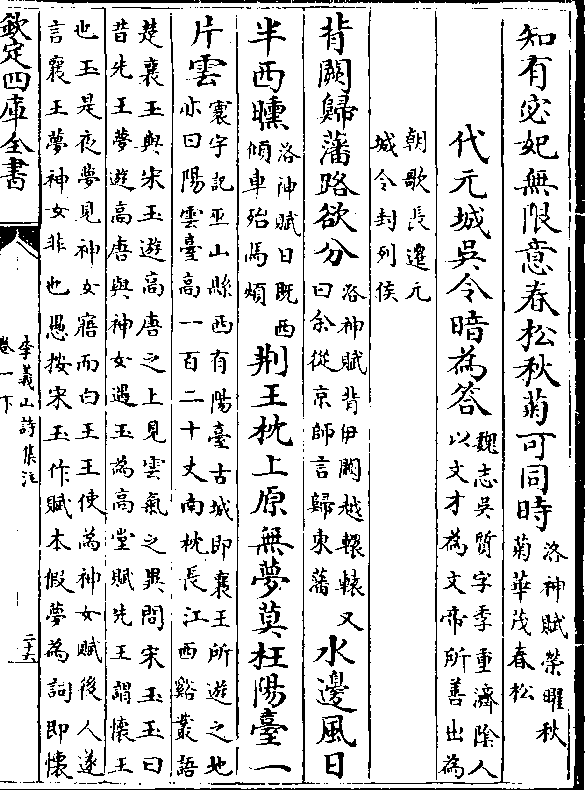 知有宓妃無限意春松秋菊可同時洛神賦榮曜秋
菊華茂春松
代元城吳令暗為答魏志吳質字季重濟陰人
以文才為文帝所善出為
朝歌長遷元
城令封列侯
背闕歸藩路欲分洛神賦背伊闕越轘轅又
曰余從京師言歸東藩水邊風日
半西曛洛神賦曰既西
傾車殆馬煩荆王枕上原無夢莫枉陽臺一
片雲寰宇記巫山縣西有陽臺古城即襄王所遊之地
亦曰陽雲臺高一百二十丈南枕長江西谿叢語
楚襄王與宋玉遊高唐之上見雲氣之異問宋玉玉曰
昔先王夢遊高唐與神女遇玉為高堂賦先王謂懷王
也玉是夜夢見神女寤而白王王使為神女賦後人遂
言襄王夢神女非也愚按宋玉作賦本假夢為詞即懷
欽定四庫全書
李義山詩集注
卷一下
二十六